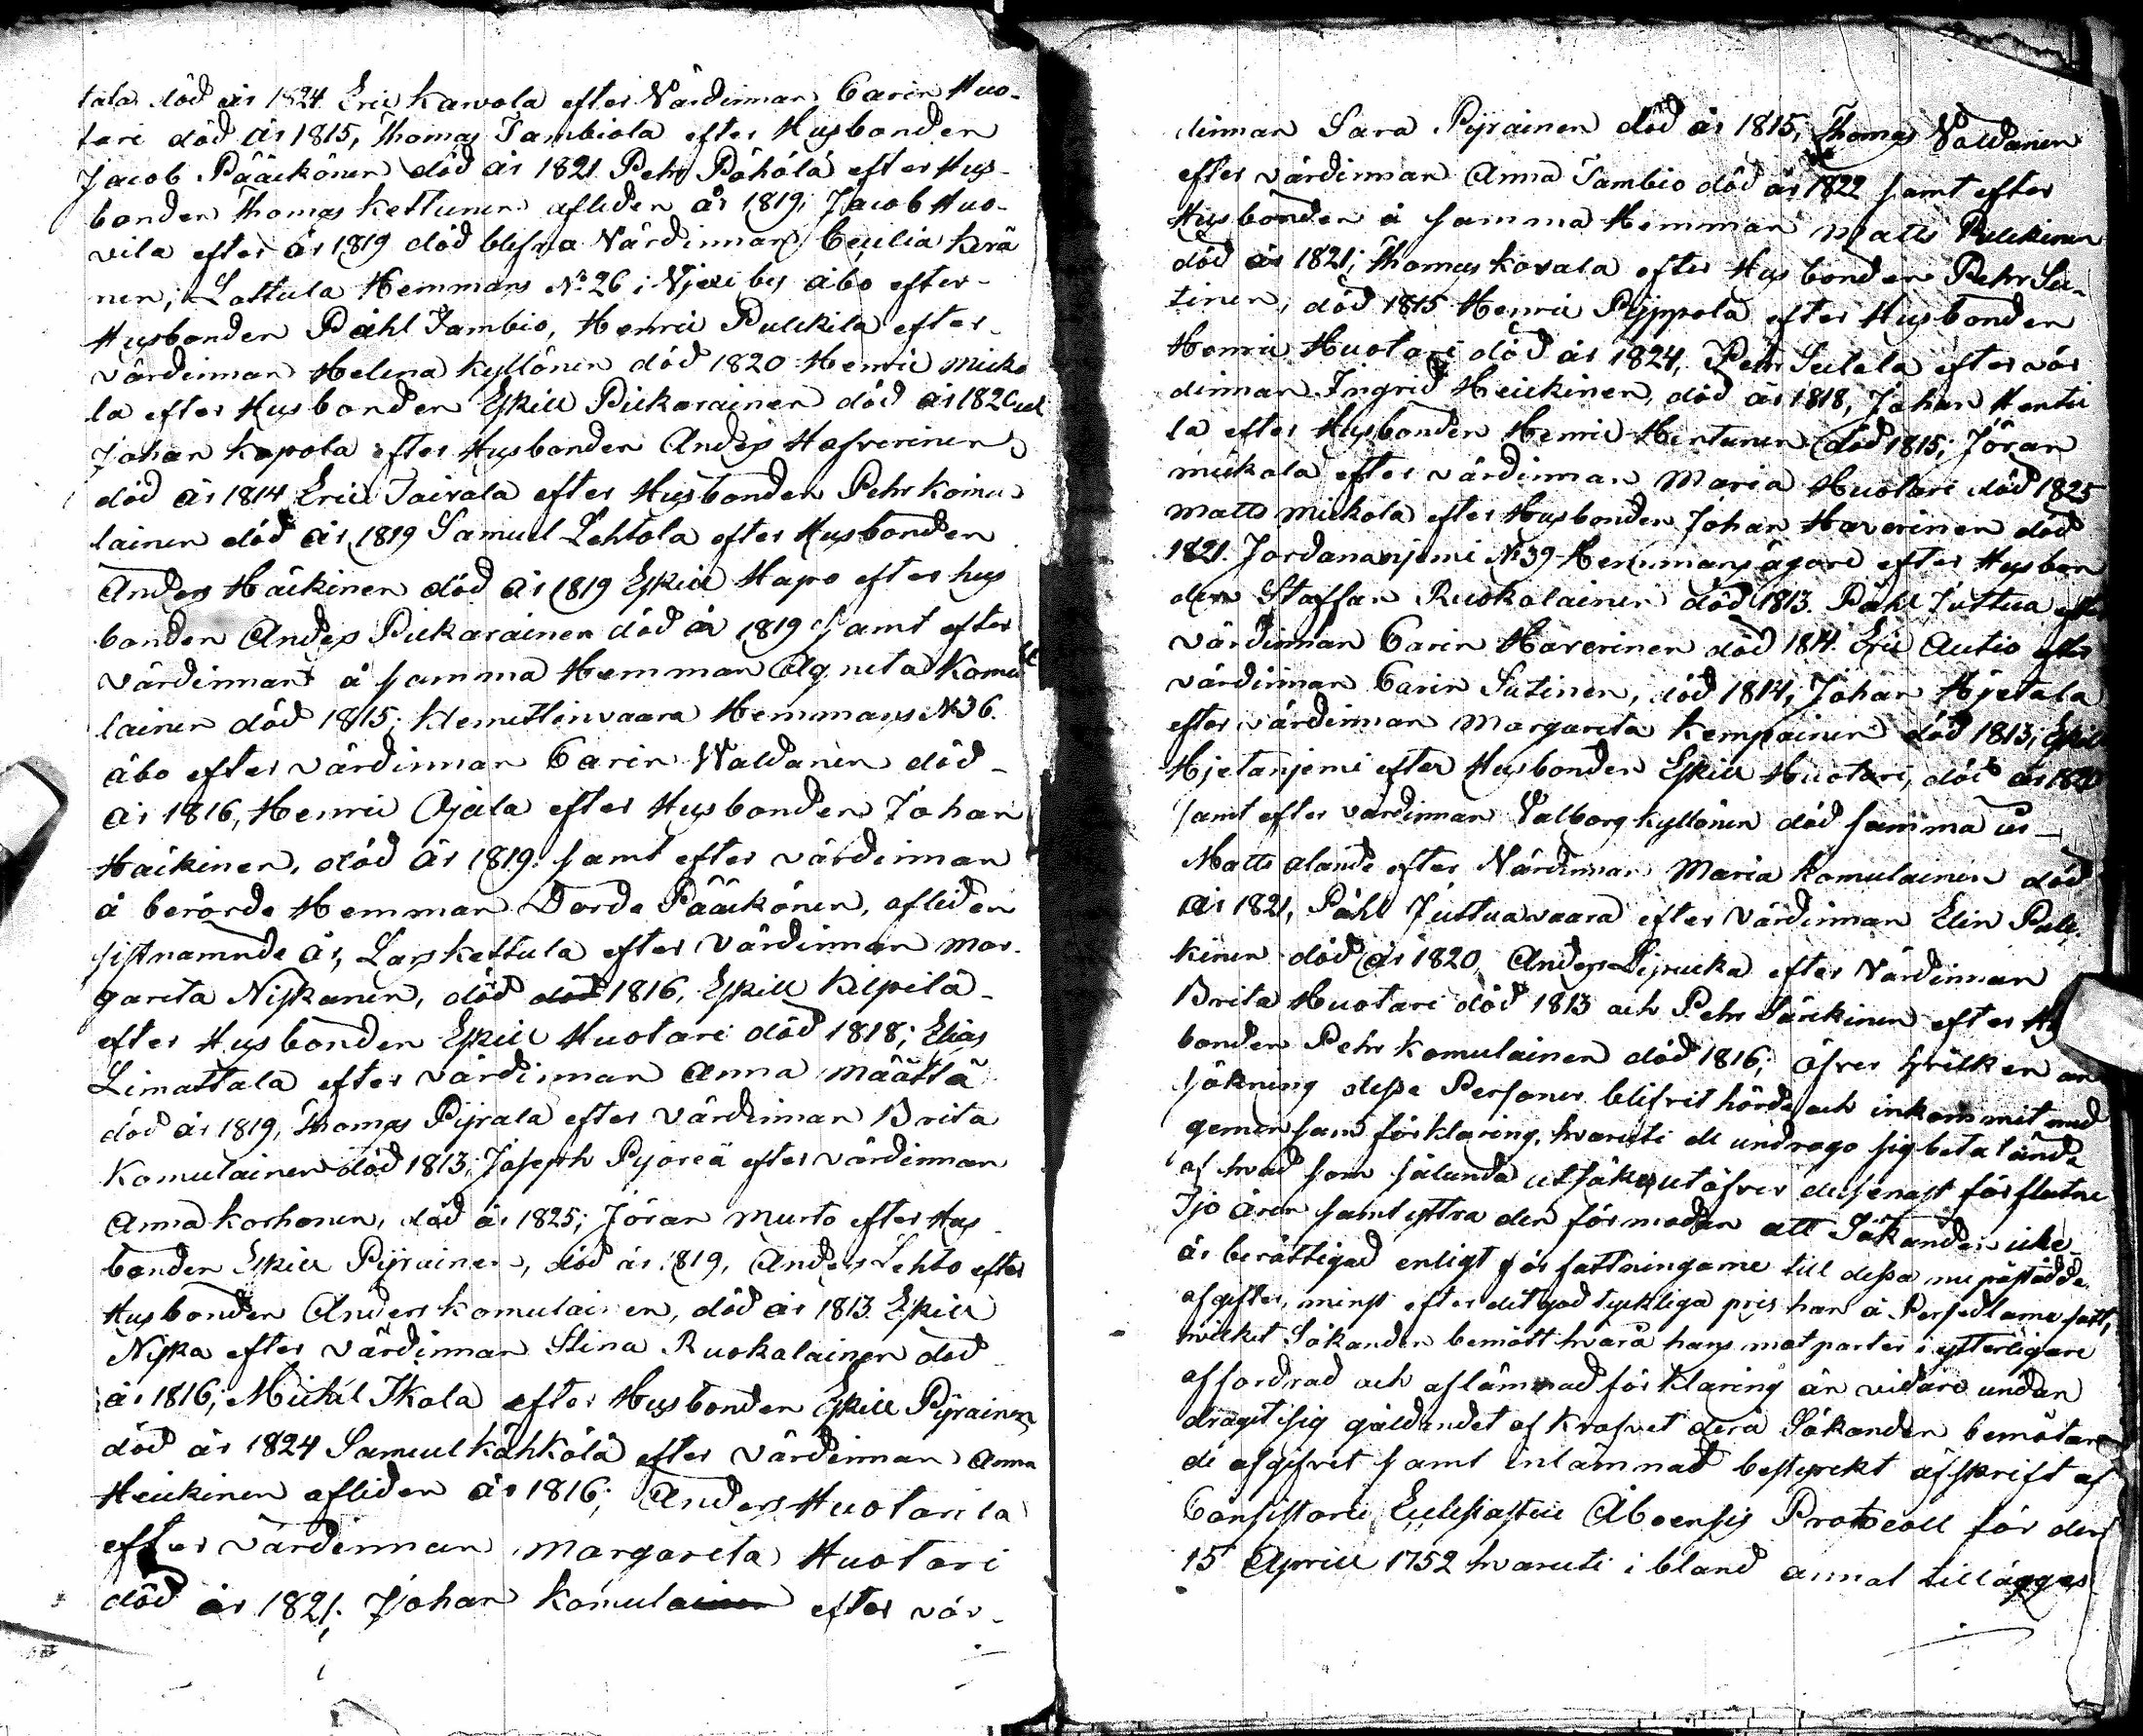 tala död år 1824. Eric Karvola efter Värdinnan Carin Huo-
tari död År 1815, Thomas Tambiola efter Husbonden
Jacob Pääckönen död år 1821. Pehr Pöhölä efter Hus-
bonden Thomas Kettunen afliden år 1819; Jacob Huo-
vila efter år 1819 död blefna Värdinnan Cecilia Kerä
nen; Lattula Hemmans No 26 i by åbo efter-
Husbonden Påhl Tambio, Henric Pulckila efter
värdinnan Helena Kyllönen död 1820 Henric Micko
la efter Husbonden Eskill Pickarainen död år 1820
Johan Kapola efter Husbonden Anders Hafverinen
död år 1814 Eric Tairala efter Husbonden Pehr Komu
lainen död år 1819 Samuel Lehtola efter Husbonden
Anders Häikinen död år 1819 Eskill Hapo efter hus
bonden Anders Pickarainen död år 1819 samt efter
värdinnan å samma Hemman Agneta Komu
lainen död 1815; Klemettinvaara Hemmans No 36.
åbo efter värdinnan Carin Waldanen död
år 1816, Henric Ojala efter Husbonden Johan
Häikinen, död år 1819. samt efter värdinnan
å berörde Hemman Dorde Pääckönen, afliden
sistnämnde år, Lars Kettula efter Värdinnan Mar-
gareta Niskanen, död död 1816, Eskill Kilpilä
efter Husbonden Eskill Huotari död 1818; Elias
Limattala efter värdinnan Anna Määttä
död år 1819, Thomas Pyrala efter Värdinnan Brita
Komulainen död 1813; Joseph Pyöreä efter värdinnan
Anna Korhonen, död år 1825; Jöran Murto efter Hus
bonden Eskill Pyrainen, död år 1819, Anders Lehto efter
Husbonden Anders Komulainen, död år 1813 Eskill
Niska efter Värdinnan Stina Ruokalainen död
år 1816; Michel Ikola efter Husbonden Eskill Pyrainen
död år 1824 Samuel Kähkölä efter Värdinnan Anna
Heickinen afliden år 1816; Anders Huotarila
efter värdinnan Margareta Huotari
död år 1821; Johan Komulainen efter vär-
dinnan Sara Pyrainen död år 1815; Thomas Valdanen
efter värdinnan Anna Tambio död år 1822 samt efter
Husbonden å samma Hemman Matts Pulckinen
död år 1821; Thomas Kovala efter Husbonden Pehr Su-
tinen, död 1815 Henric Pyppola efter Husbonden
Henric Huotari död år 1824, Pehr Seilala efter vär
dinnan Ingrid Heickinen, död år 1818, Johan Hentu
la efter Husbonden Henric Hentunen död 1815; Jöran
Mickala efter värdinnan Maria Huotari död 1825
Matts Mickola efter Husbonden Johan Haverinen död
1821. Jordananjemi No 39 Hemmans ägare efter Husbon
den Staffan Ruokolainen död 1813. Påhl Juttua efter
värdinnan Carin Haverinen död 1814. Eric Autio efter
värdinnan Carin Sutinen, död 1814, Johan Hjetala
efter värdinnan Margareta Kempainen död 1813; Eskill
Hjetanjemi efter Husbonden Eskill Huotari, död år 1820
samt efter värdinnan Valborg Kyllönen död samma år
Matts alande efter Värdinnan Maria Komulainen död
år 1821, Påhl Juttuavaara efter värdinnan Elin Pulc
kinen död år 1820, Anders efter Värdinnan
Brita Huotari död 1813 och Pehr Särkinen efter
bonden Pehr Komulainen död 1816; öfver hvilken an
sökning desse Personer blifvit hörde och inkommit med
gemensam förklaring, hvaruti de undrago sig betalande
af hvad som sålunda utsökes utöfver de senast förflutne
Tjo åren samt yttra den förmodan att Sökanden icke
är berättigad enligt författningarne till dessa nu påstådde
afgifter, minst efter det godtyckliga pris han å Persedlarne satt,
hvilket Sökanden bemött hvarå hans motparter i ytterligare
affordrad och aflämnad förklaring än vidare undan
dragit sig gäldandet af krafvet derå Sökanden bemötan
de afgifvit samt inlämnad bestyrkt afskrift af
Consistorii Ecclesiastici Aboensis Protocoll för den
15 Aprill 1752 hvaruti i bland annat tillägges